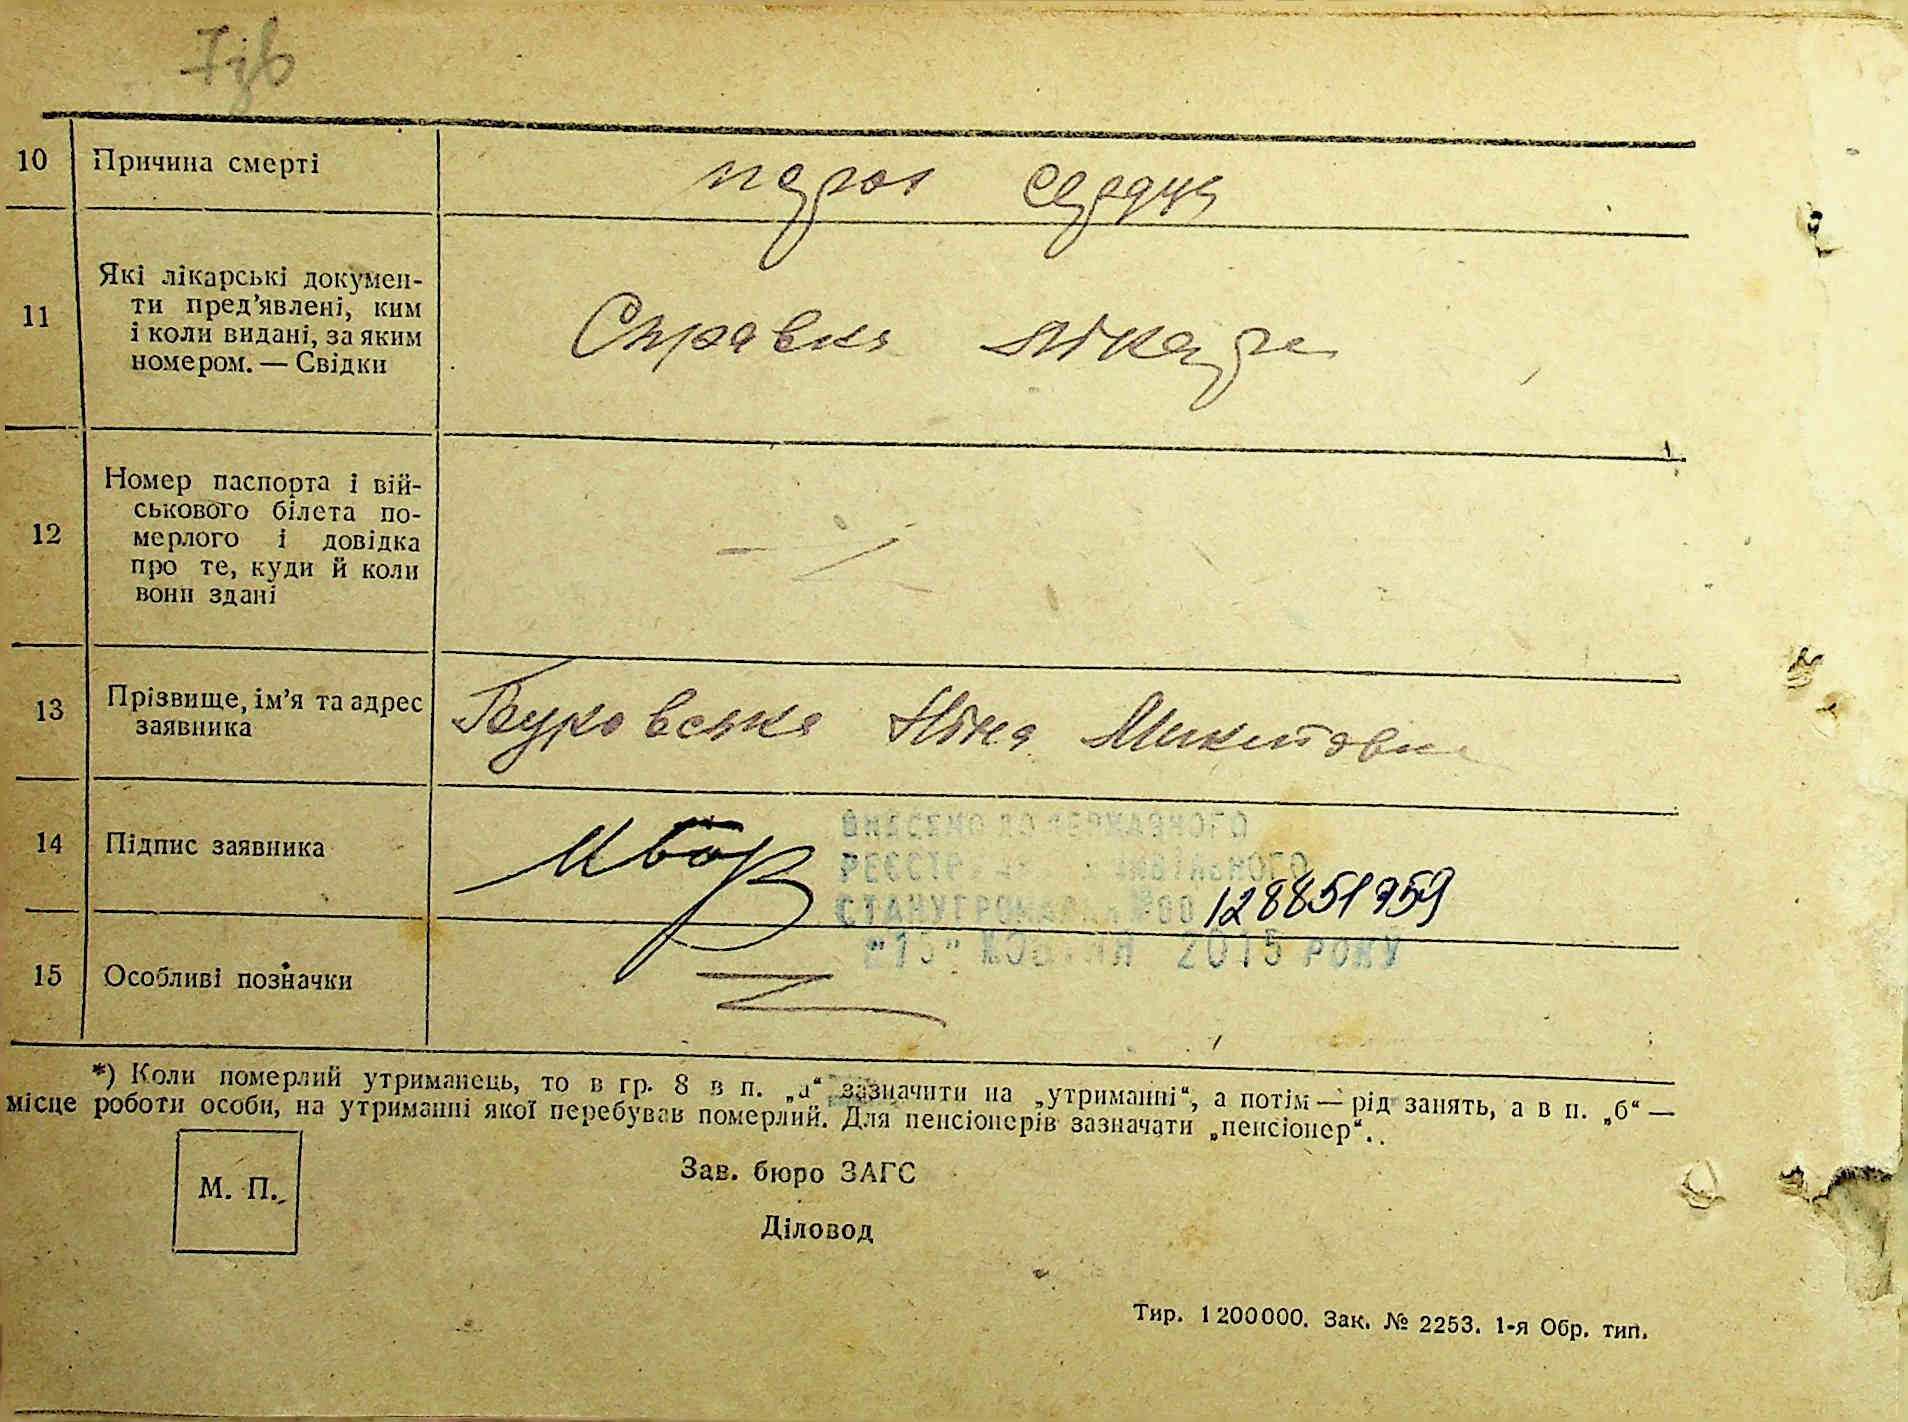 7зв
10 Причина смерті порок сердця
11 Які лікарські докумен-
ти пред’явлені, ким
і коли видані, за яким
номером. — Свідки
Справка лікаря
12 Номер паспорта і вій-
ськового білета по-
мерлого і довідка
про те, куди й коли
вони здані
—
13 Прізвище, ім’я та адрес
заявника
Буковська Ніна Микитовна
14 Підпис заявника
ВНЕСЕНО ДО ДЕРЖАВНОГО
РЕЄСТРУ АКТІВ ЦИВІЛЬНОГО
СТАНУ ГРОМАДЯН №00 128851759
"15" ЖОВТНЯ 2015 РОКУ
15 Особливі позначки
*) Коли померлий утриманець, то в гр. 8 в п. „а“ зазначити на „утриманні“, а потім — рід занять, а в п. „б“ —
місце роботи особи, на утриманні якої перебував померлий. Для пенсіонерів зазначати „пенсіонер“.
М. П.
Зав. бюро ЗАГС
Діловод
Тир. 1200000. Зак. № 2253. 1-я Обр. тип.